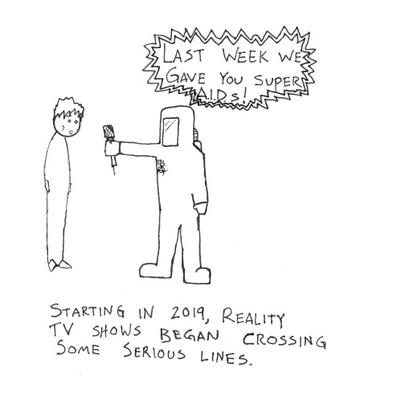 LAST WEEK WE
GAVE YOU SUPER
A.I.D.S!
STARTING IN 2019, REALITY
TV SHOWS BEGAN CROSSING
SOME SERIOUS LINES.